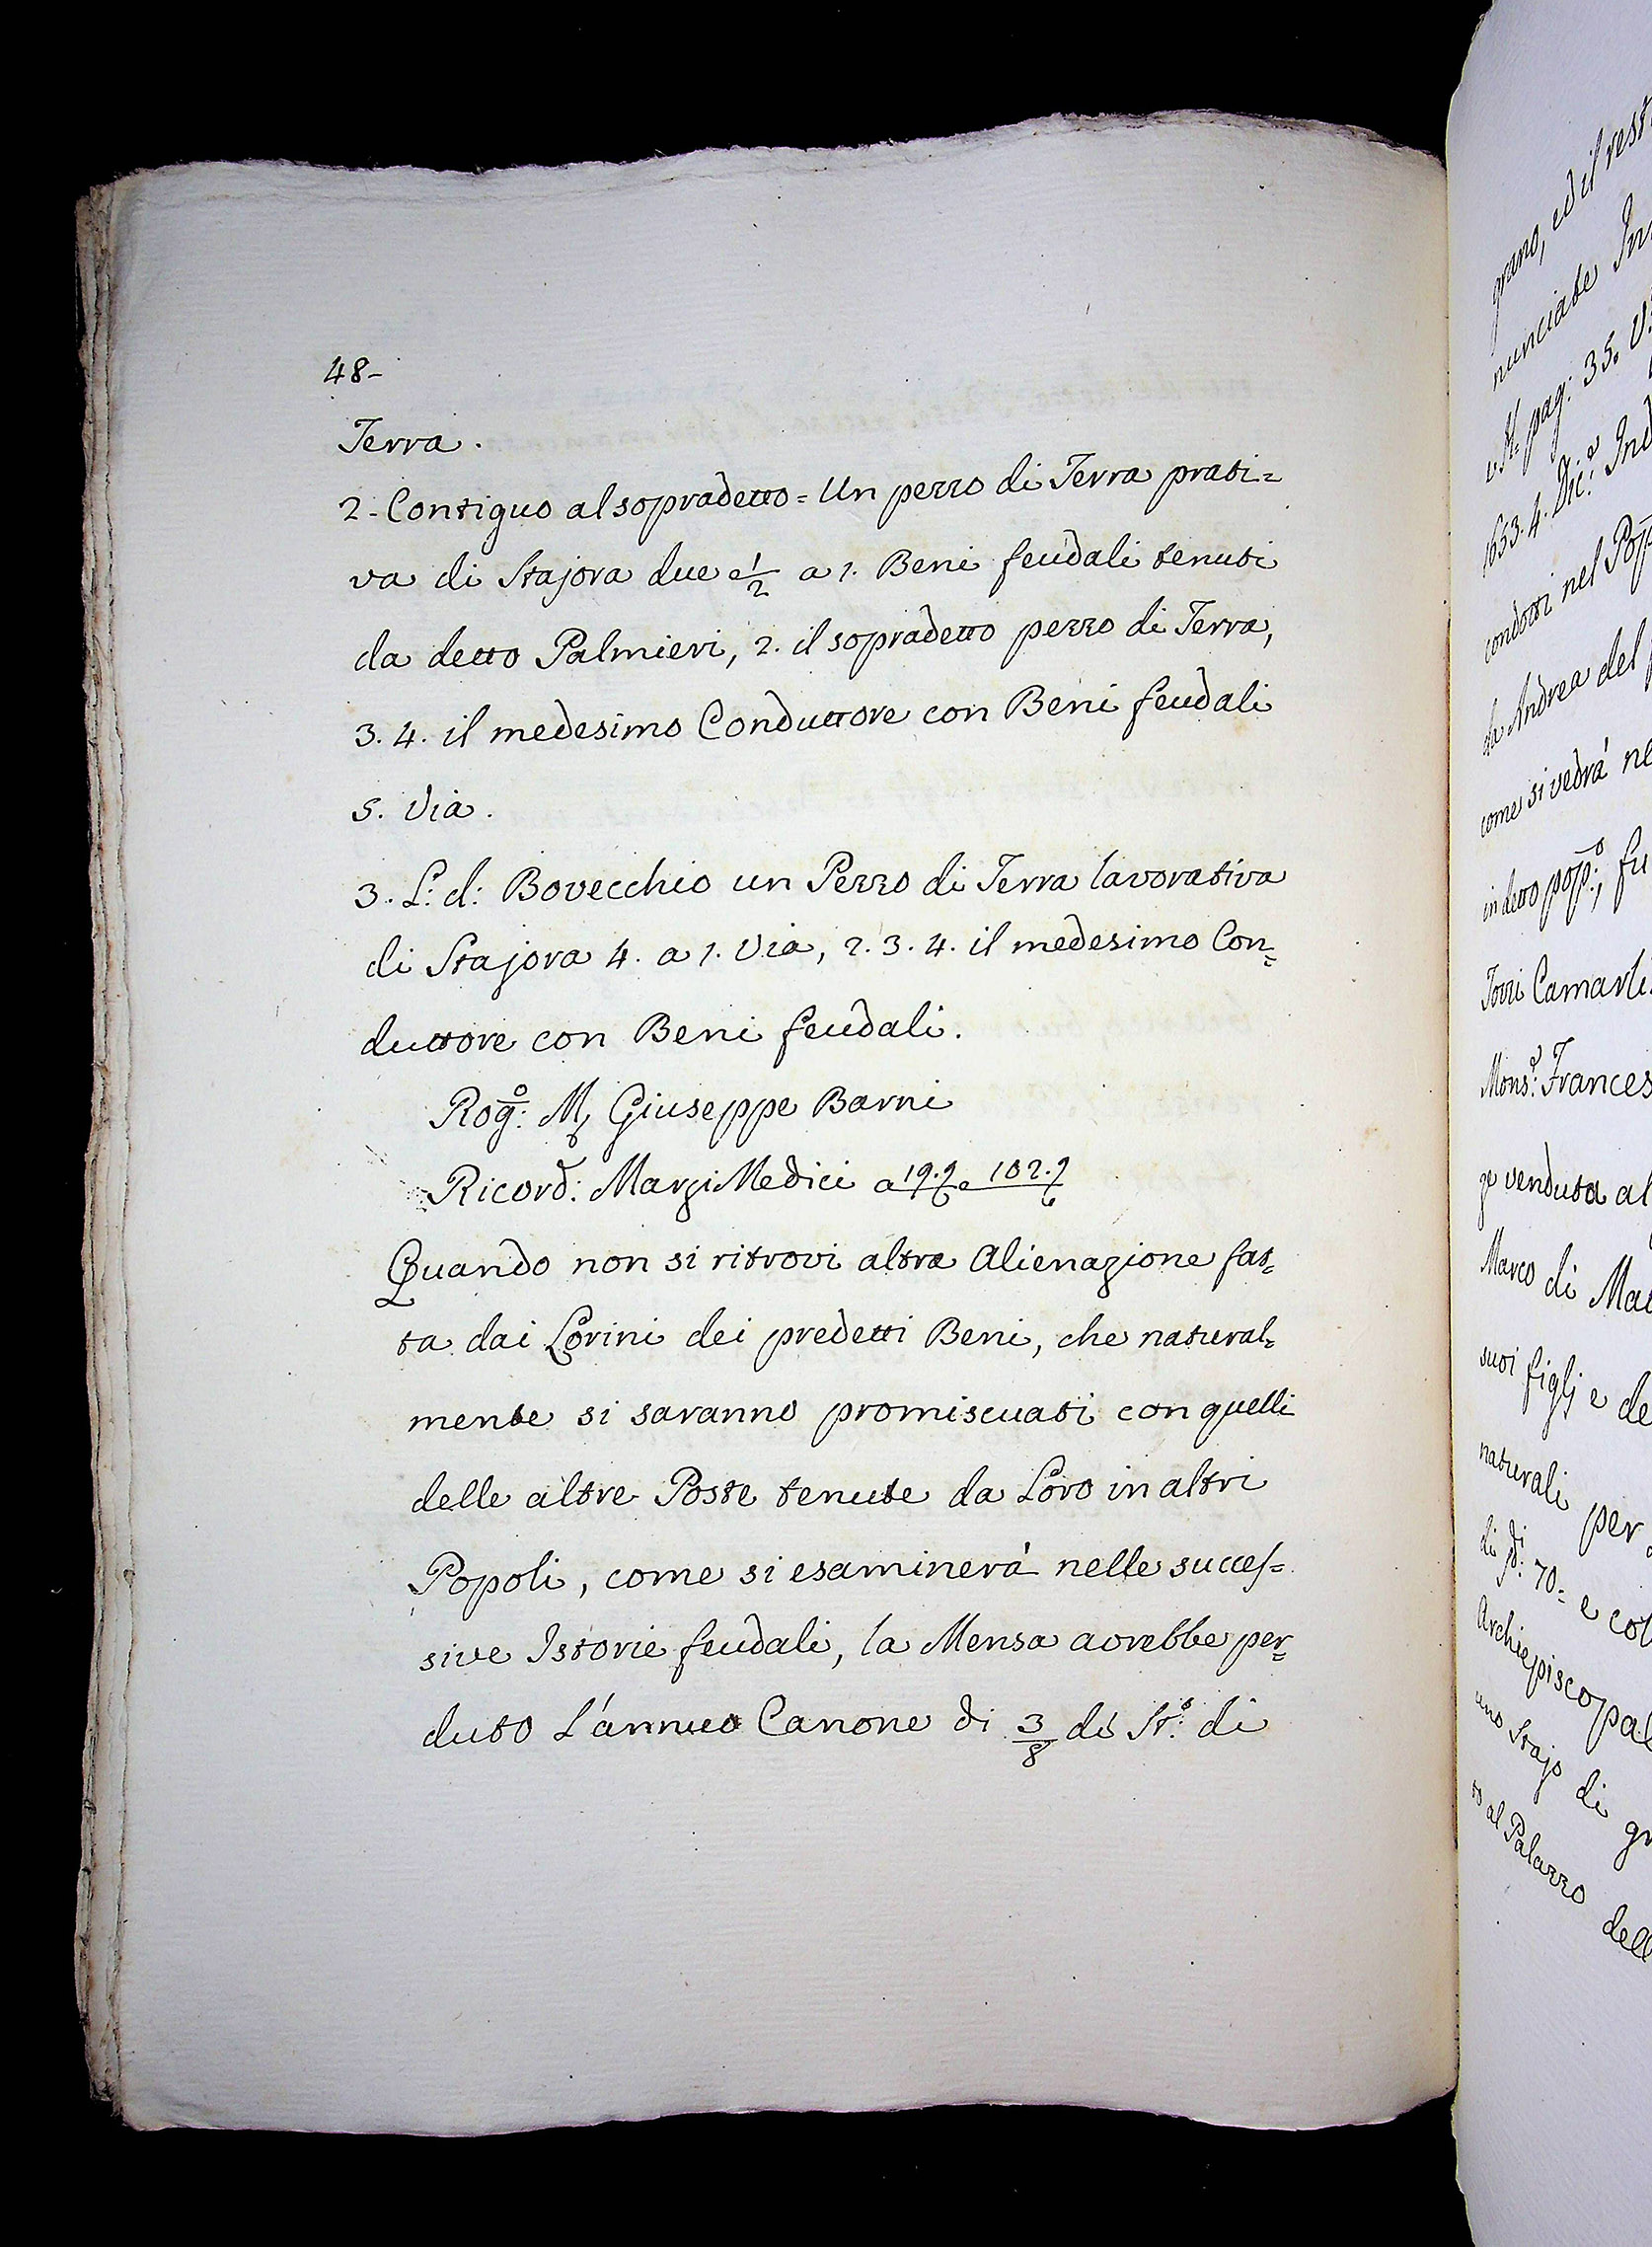 48-
Terra.
2- Contiguo al sopradetto = Un pezzo di Terra prati=
va di Stajora due e 1/2 a 1. Beni feudali tenuti
da detto Palmieri, 2. il sopradetto pezzo di Terra,
3. 4. il medesimo Conduttore con Beni feudali
5. Via.
3. L: d: Bovecchio un Pezzo di Terra lavorativa
di Stajora 4. a 1. Via, 2. 3. 4. il medesimo Con=
duttore con Beni feudali.
Rog:o Giuseppe Barni
Ricord: Marzi Medici a 19. e 102.
Quando non si ritrovi altra Alienazione fat=
ta dai Lorini dei predetti Beni, che natural=
mente si saranno promiscuati con quelli
delle altre Poste tenute da Loro in altri
Popoli, come si esaminerà nelle succes=
sive Istorie feudali, la Mensa avrebbe per=
duto L'annuo Canone di 3/8 di St:o di
grano, ed il rest
nunciate
pag: 35.
1653. 4. Dic:e Ind
condotti nel Pop
da Andrea del
come si vedrà ne
in detto pop:o, fu
Torri Camarli
Mons:r Frances
venduta al
Marco di Ma
suoi figlj e de
naturali per
di 70= e col
Archiepiscopal
uno Stajo di gr
to al Palazzo dell